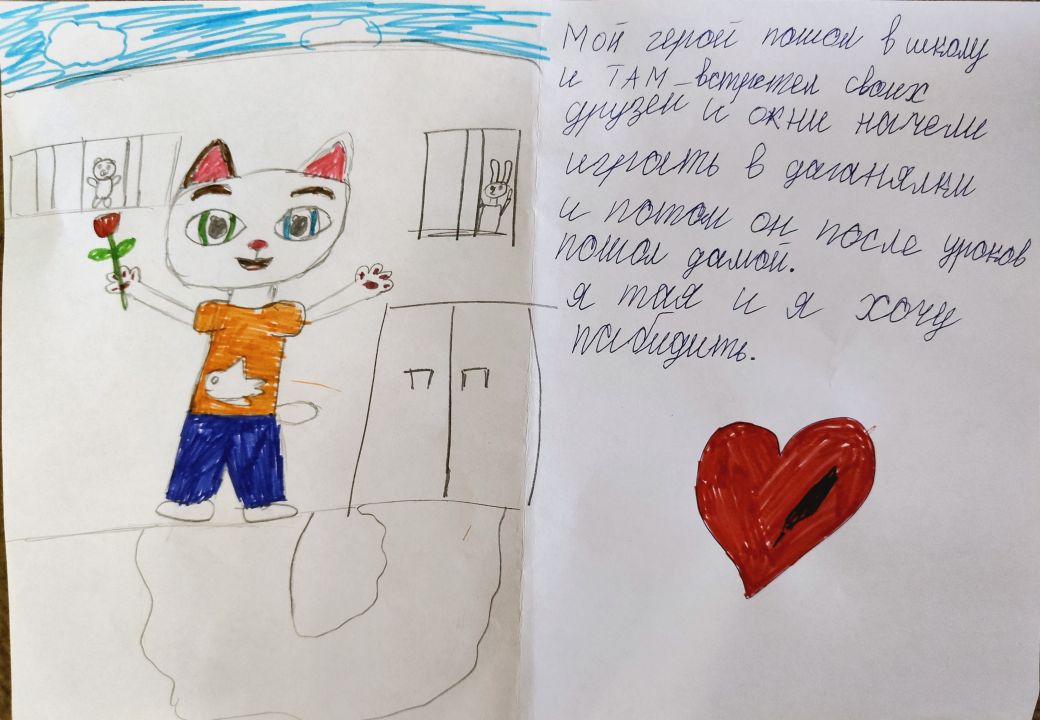 Мой герой пошол в школу
и ТАМ встретел своих
друзей и окни начели
играть в даганялки
и потом он после уроков
пошол дамой.
я тая и я хочу
пабидить.